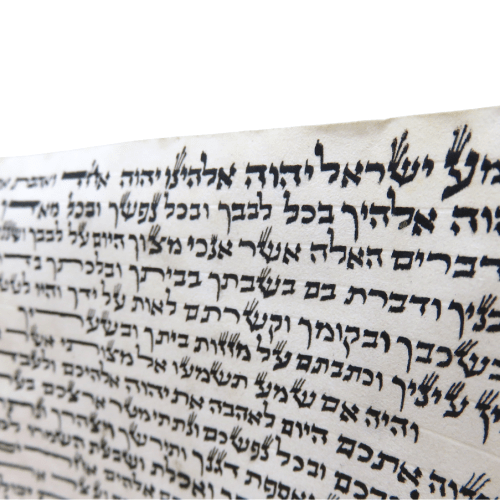 מע ישראל יהוה אלהינו יהוה אחד ואהבת את
וה אלהיך בכל לבבך ובכל נפשך ובכל מאדך
דברים האלה אשר אנכי מצוך היום על לבבך
בניך ודברת בם בשבתך בביתך ובלכתך
בשכבך ובקומך וקשרתם לאות על ידך והיו
ין עיניך וכתבתם על מזזות ביתך ובשעריך
והיה אם שמע תשמעו אל מצותי אשר
וה אתכם היום לאהבה את יהוה אלהיכם ולעבדו
בבכם ובכל נפשכם ונתתי מטר ארצכם
ואספת דגנך ותירשך ויצהרך
ואכלת ושבעת השמרו